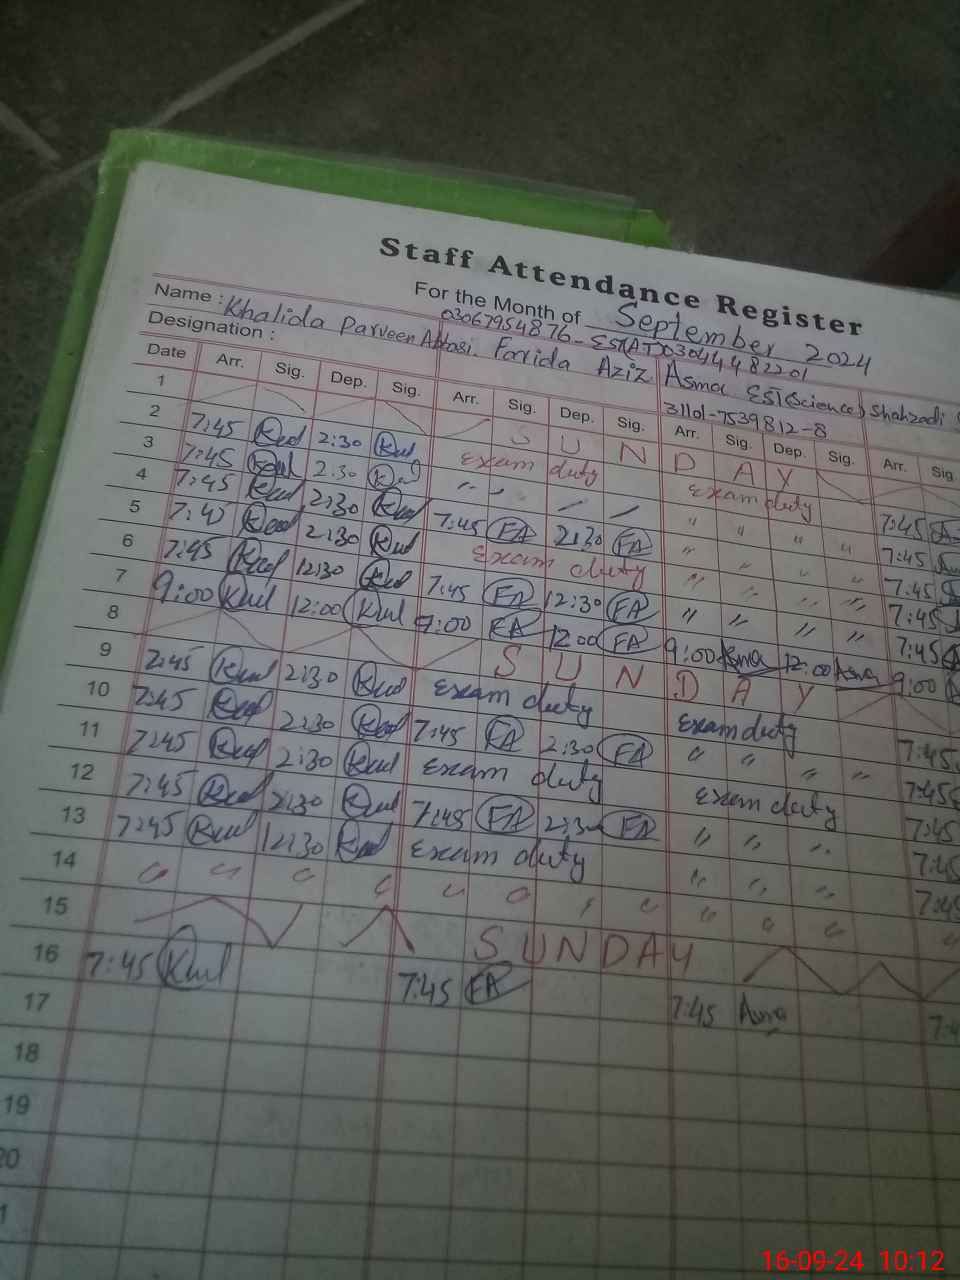 Staff Attendance Register
For the Month of September 2024
Name : Khalida Parveen Abbasi. Farrida Aziz Asma EST(Science) Shahzadi
03067954876- EST(AT)03044482201
Designation : 31101-7539812-8
Date Arr. Sig. Dep. Sig. Arr. Sig. Dep. Sig. Arr. Sig. Dep. Sig. Arr. Sig.
1 S U N D A Y
2 7:45 2:30 Exam duty Exam duty 7:45
3 7:45 2:30 〃 〃 〃 〃 〃 〃 〃 7:45
4 7:45 2:30 7:45 FA 2:30 FA 〃 〃 〃 〃 7:45
5 7:45 2:30 Exam duty 〃 〃 〃 〃 7:45
6 7:45 12:30 7:45 FA 12:30 FA 〃 〃 〃 〃 7:45
7 9:00 12:00 9:00 FA 12:00 FA 9:00 Asma 12:00 Asma 9:00
8 S U N D A Y
9 7:45 2:30 Exam duty Exam duty 7:45
10 7:45 2:30 7:45 FA 2:30 FA 〃 〃 〃 〃 7:45
11 7:45 2:30 Exam duty Exam duty 7:45
12 7:45 2:30 7:45 FA 2:30 FA 〃 〃 〃 7:45
13 7:45 12:30 Exam duty 〃 〃 〃 7:45
14 〃 〃 〃 〃 〃 〃 〃 〃 〃 〃 〃 〃
15 SUNDAY
16 7:45 7:45 FA 7:45 Asma
17
18
19
20
16-09-24 10:12